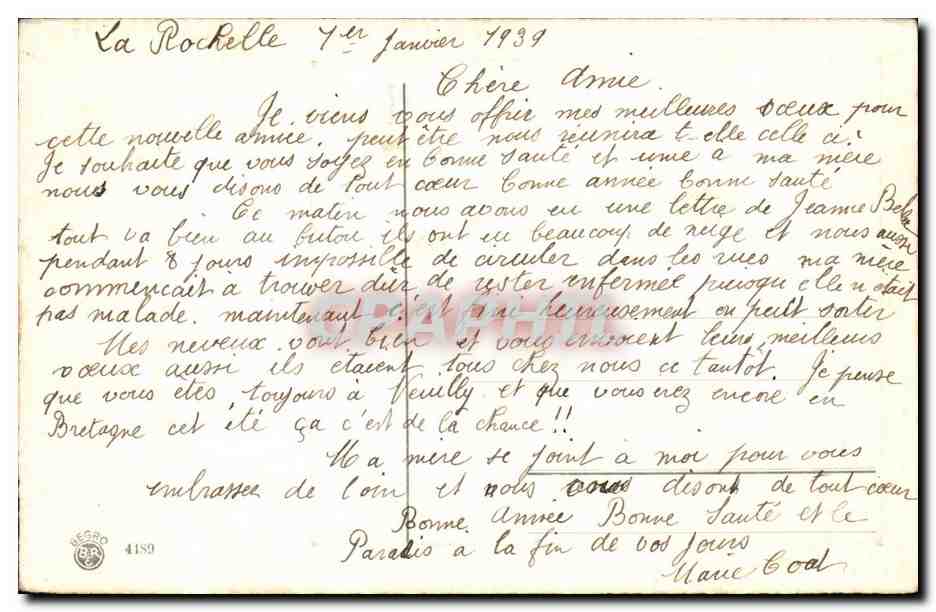 La Rochelle 1er Janvier 1939
Chère Amie.
Je viens vous offrir mes meilleures voeux pour
cette nouvelle année. peut être nous réunira t-elle celle ci.
Je souhaite que vous soyez en bonne santé et unie a ma mère
nous vous disons de tout coeur bonne année bonne santé
Ce matin nous avons eu une lettre de Jeanne
tout va bien au ils ont eu beaucoup de neige et nous aussi
pendant 8 jours impossible de circuler dans les rues ma mère
commencait a trouver dur de rester enfermée puisqu elle n etait
pas malade. maintenant c'est fini heureusement on peut sortir
Mes neveux vont bien et vous envoient leurs meilleurs
voeux aussi ils étaient tous chez nous ce tantôt. Je pense
que vous etes toujours à Neuilly et que vous irez encore en
Bretagne cet été ça c'est de la chance !!
Ma mère se joint a moi pour vous
embrasser de loin et nous vous disons de tout coeur
Bonne Année Bonne Santé et le
Paradis à la fin de vos jours
Marie Coat
BEGRO
4189
GRAPHTI